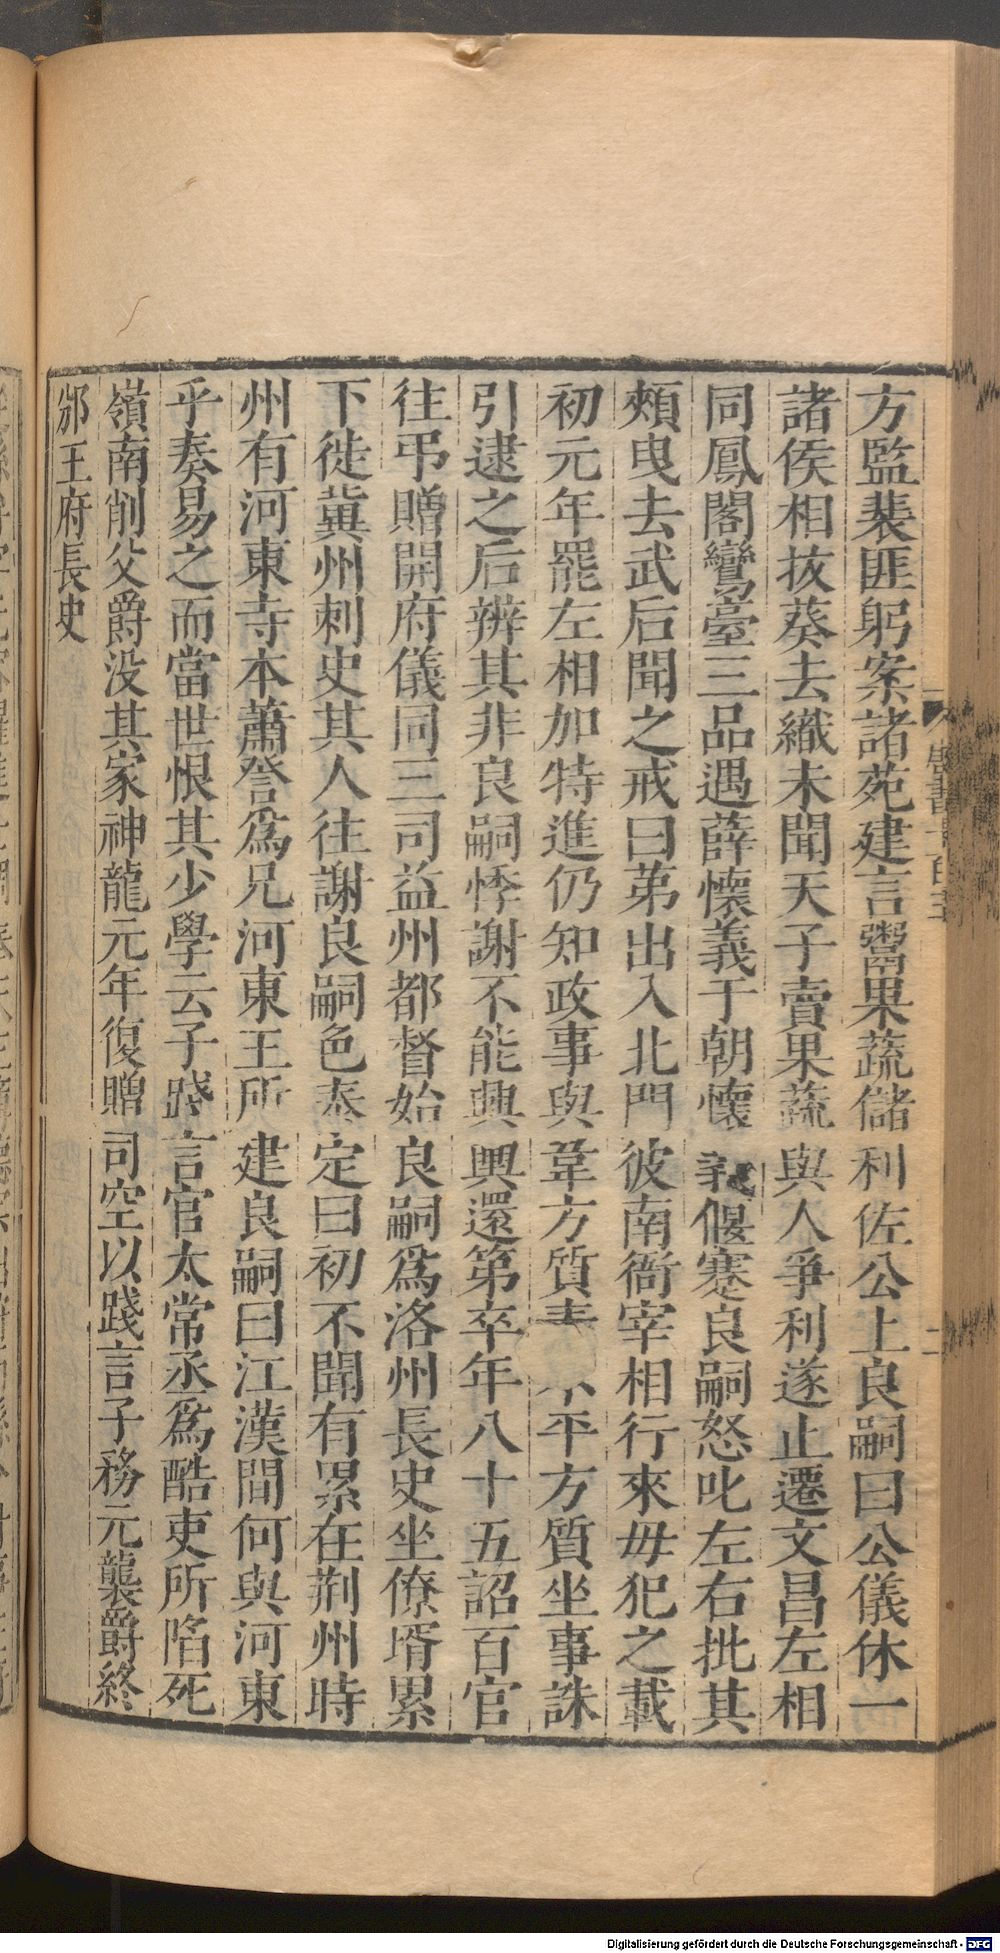 方監裴匪躬案諸苑建言鬻果蔬儲利佐公上良嗣曰公儀休一
諸侯相拔葵去織未聞天子賣果蔬與人爭利遂止遷文昌左相
同鳳閣鸞臺三品遇薛懷義于朝懷義偃蹇良嗣怒叱左右批其
頰曳去武后聞之戒曰第出入北門彼南衙宰相行來毋犯之載
初元年罷左相加特進仍知政事與韋方質素不平方質坐事誅
引逮之后辨其非良嗣悸謝不能興輿還第卒年八十五詔百官
往弔贈開府儀同三司益州都督始良嗣爲洛州長史坐僚壻累
下徙冀州刺史其人往謝良嗣色泰定曰初不聞有累在荆州時
州有河東寺本蕭詧爲兄河東王所建良嗣曰江漢間何與河東
乎奏易之而當世恨其少學云子踐言官太常丞爲酷吏所陷死
嶺南削父爵没其家神龍元年復贈司空以踐言子務元襲爵終
邠王府長史
唐書一百三
二
Digitalisierung gefördert durch die Deutsche Forschungsgemeinschaft - DFG